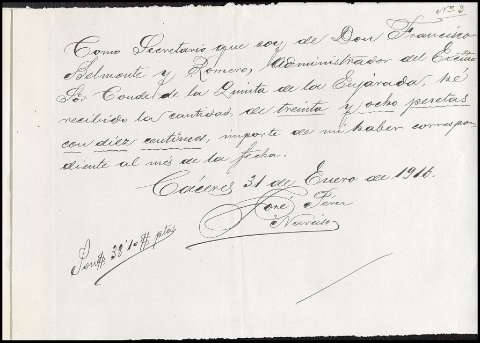 Nº 2
Como Secretario que soy de Don Francisco
Belmonte y Romero, Administrador del Excmo
Sór Conde de la Quinta de la Enjarada, hé
recibido la cantidad de treinta y ocho pesetas
con diez centimos, importe de mi haber correspon
diente al més de la fecha.
Cáceres 31 de Enero de 1916.
José
Narciso
38'10 ptas